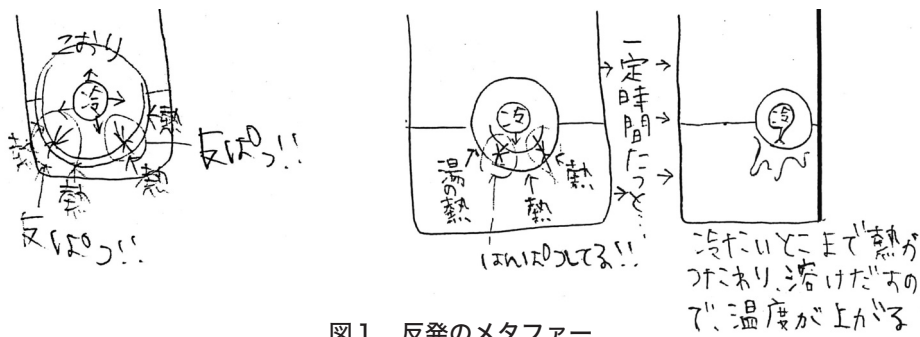 こおり
冷
熱
熱
熱
熱
反ぱつ!!
反ぱつ!!
冷
湯の熱
熱
熱
はんぱつしてる!!
一定時間たつと…
冷
冷たいとこまで熱が
つたわり、溶けだすの
で、温度が上がる
図1 反発のメタファー